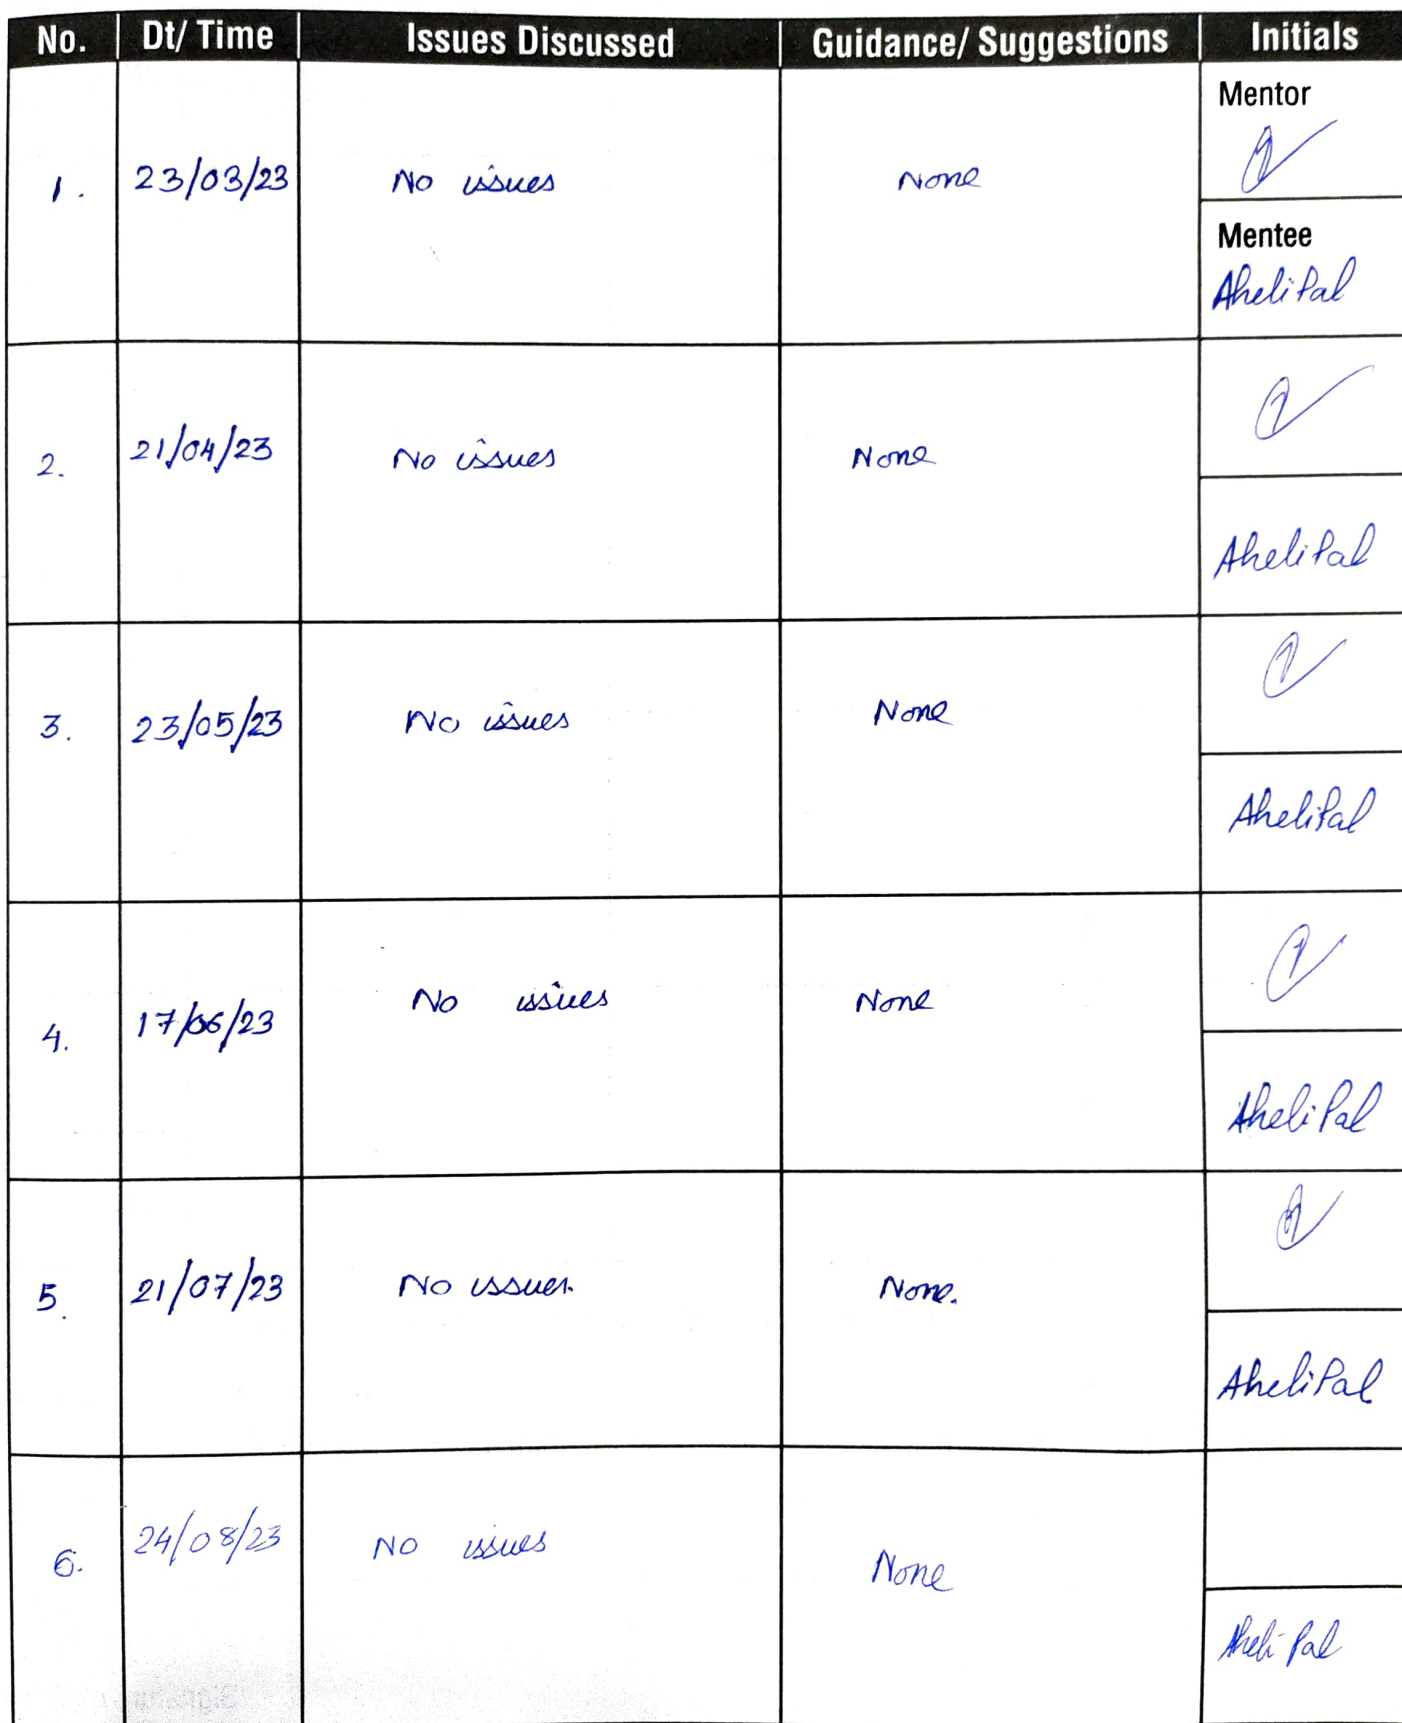 No. Dt/ Time Issues Discussed Guidance/ Suggestions Initials
Mentor
1. 23/03/23 No issues None
Mentee
Aheli Pal
2. 21/04/23 No issues None
Aheli Pal
3. 23/05/23 No issues None
Aheli Pal
4. 17/06/23 No issues None
Aheli Pal
5. 21/07/23 No issues. None.
Aheli Pal
6. 24/08/23 No issues None
Aheli Pal